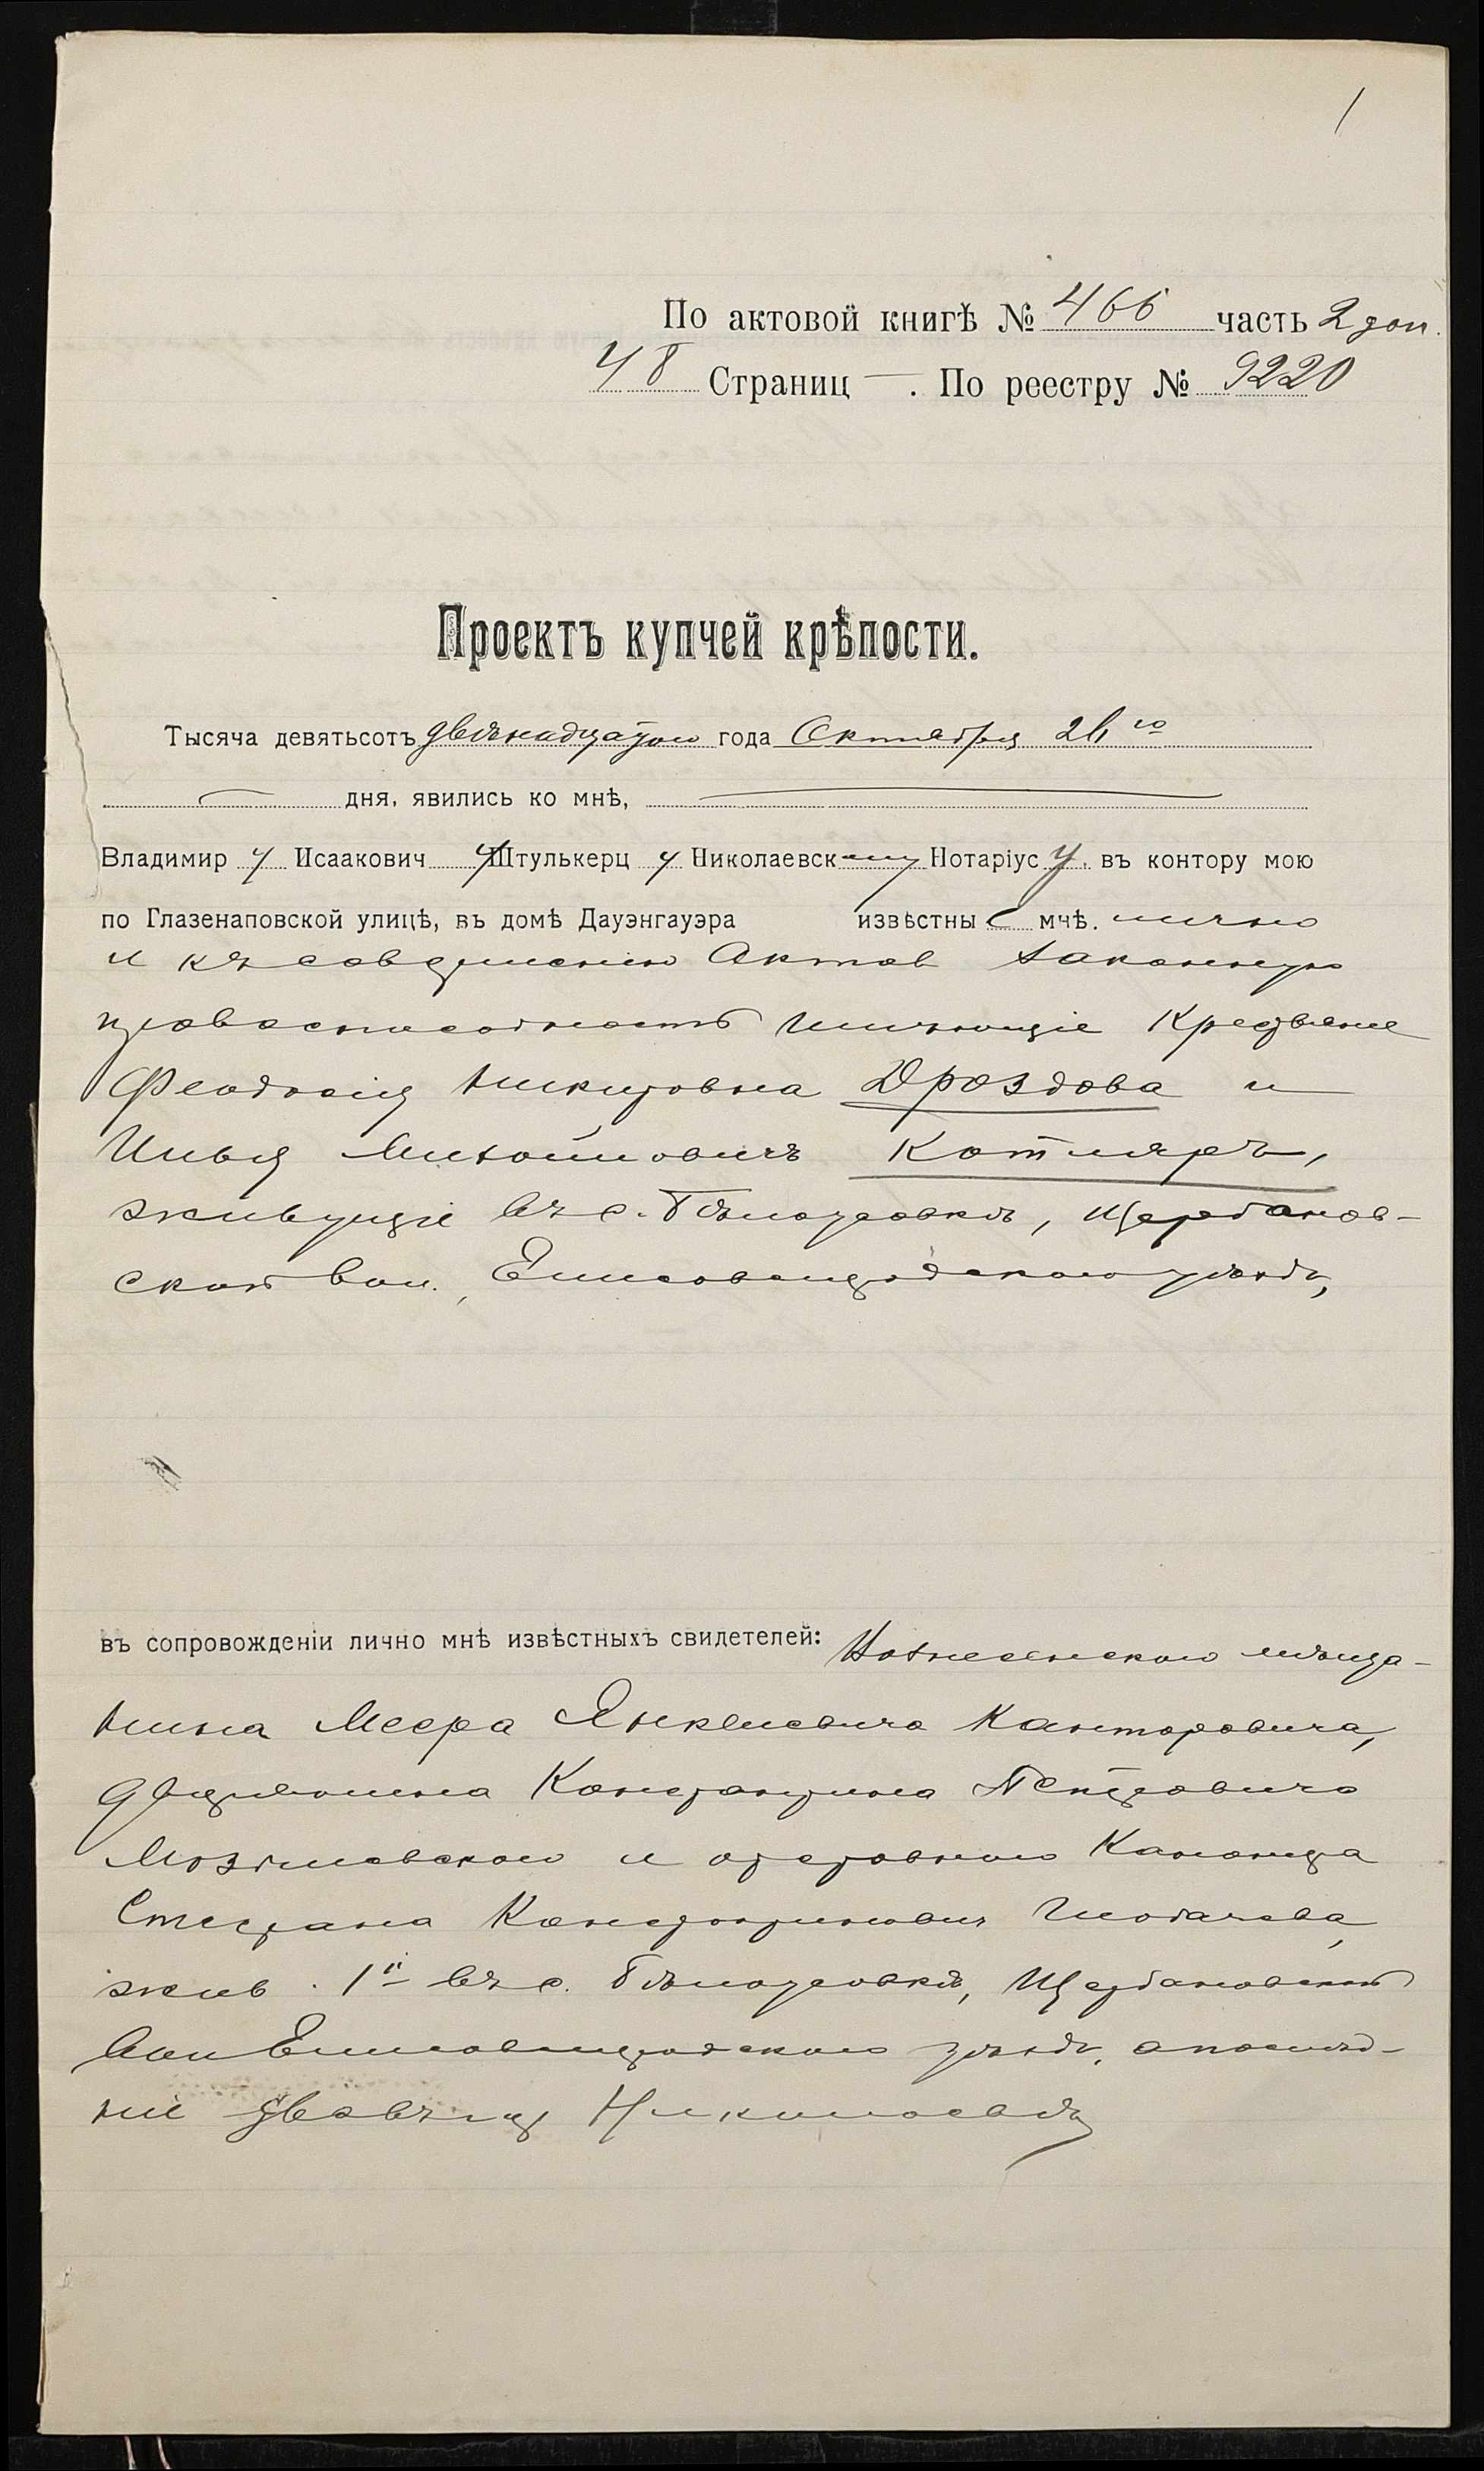 1
По актовой книгѣ № 466 часть 2 доп.
48 Страниц — . По реестру № 9220
Проектъ купчей крѣпости.
Тысяча девятьсотъ двѣнадцатого года Октября 26 го
дня, явились ко мнѣ,
Владимир у Исаакович у Штулькерц у Николаевск ому Нотаріус у. въ контору мою
по Глазенаповской улицѣ, въ домѣ Дауэнгауэра извѣстны е мчѣ. лично
и къ совершенію Актов законную
правоспособность имѣющіе Крестьяне
Феодосія Никитовна Дроздова и
Илья Михайлович Котляръ,
живущіе въ с. Бѣлоусовкѣ, Щербанов-
ской вол., Елисаветградского уѣзда,
въ сопровожденіи лично мнѣ извѣстныхъ свидетелей: Вознесенского мѣща-
нина Меера Янкелевича Канторовича,
дворянина Константина Петровича
и отставного
Степана Константинович
жив. 1й въ с. Бѣлоусовкѣ, Щербановской
вол Елисаветградского уѣзда, а послѣд-
ніе два въ гор Николаевѣ